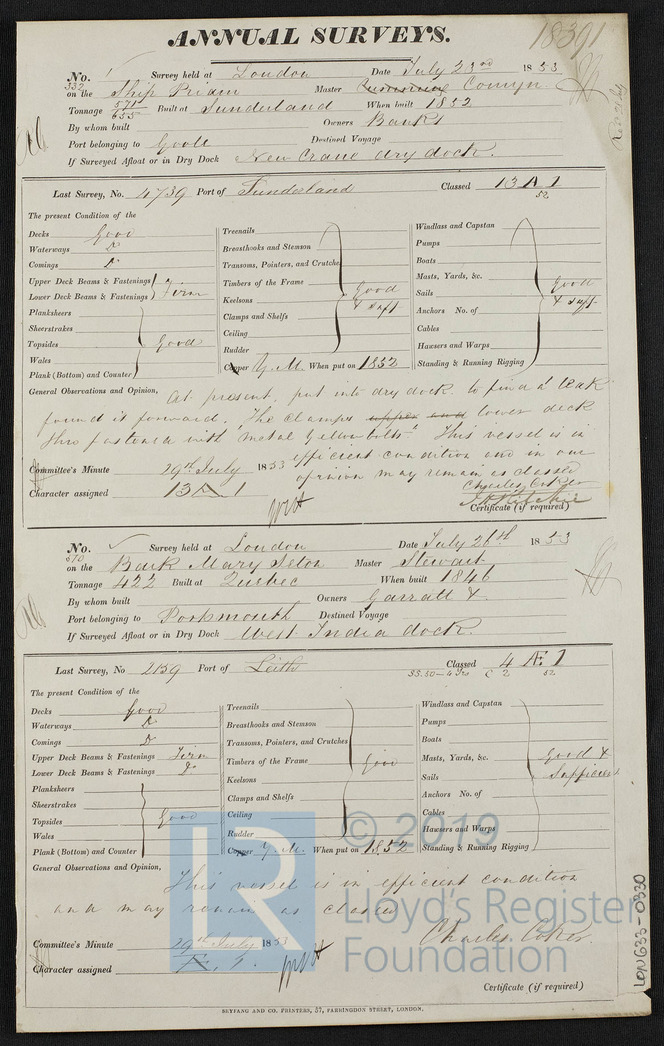 ANNUAL SURVEYS.
18391
No. 332 Survey held at London Date July 23rd 1853
on the Ship Priam Master Comyn
Tonnage 571 655 Built at Sunderland When built 1852
By whom built Owners Banks
Port belonging to Goole Destined Voyage
If Surveyed Afloat or in Dry Dock New Crane dry dock.
Last Survey, No. 4739 Port of Sunderland Classed 13 A 1
52
The present Condition of the
Decks Good
Waterways Do
Comings Do
Upper Deck Beams & Fastenings
Lower Deck Beams & Fastenings Firm
Planksheers
Sheerstrakes
Topsides Good
Wales
Plank (Bottom) and Counter
Treenails
Breasthooks and Stemson
Transoms, Pointers, and Crutches
Timbers of the Frame Good
Keelsons & suft
Clamps and Shelfs
Ceiling
Rudder
Copper Y.M. When put on 1852
Windlass and Capstan
Pumps
Boats
Masts, Yards, &c.
Sails Good
Anchors No. of & suft
Cables
Hawsers and Warps
Standing & Running Rigging
General Observations and Opinion, At present, put into dry dock to find a leak
found it forward. The clamps upper and lower deck
thro fastened with metal Yellow bolts. This vessel is in
efficient condition and in our
opinion may remain as classed
Committee's Minute 29th July 1853
Charles Coker
Character assigned 13 A 1
J. H. Ritchie
Certificate (if required)
No. 670 Survey held at London Date July 26th 1853
on the Bark Mary Seton Master Stewart
Tonnage 422 Built at Quebec When built 1846
By whom built Owners Garrall &
Port belonging to Portsmouth Destined Voyage
If Surveyed Afloat or in Dry Dock West India dock.
Last Survey, No 2159 Port of Leith Classed 4 Æ 1
52
The present Condition of the
Decks Good
Waterways Do
Comings Do
Upper Deck Beams & Fastenings Firm
Lower Deck Beams & Fastenings Do
Planksheers
Sheerstrakes
Topsides Good
Wales
Plank (Bottom) and Counter
Treenails
Breasthooks and Stemson
Transoms, Pointers, and Crutches
Timbers of the Frame Good
Keelsons
Clamps and Shelfs
Ceiling
Rudder
Copper Y.M. When put on 1852
Windlass and Capstan
Pumps
Boats
Masts, Yards, &c. Good &
Sails Sufficient
Anchors No. of
Cables
Hawsers and Warps
Standing & Running Rigging
General Observations and Opinion,
This vessel is in efficient condition
and may remain as classed
Charles Coker
Committee's Minute 29th July 1853
Character assigned Æ 1.
Certificate (if required)
SEYFANG AND CO. PRINTERS, 57, FARRINGDON STREET, LONDON.
LON633-0330
LR
© 2019
Lloyd's Register
Foundation